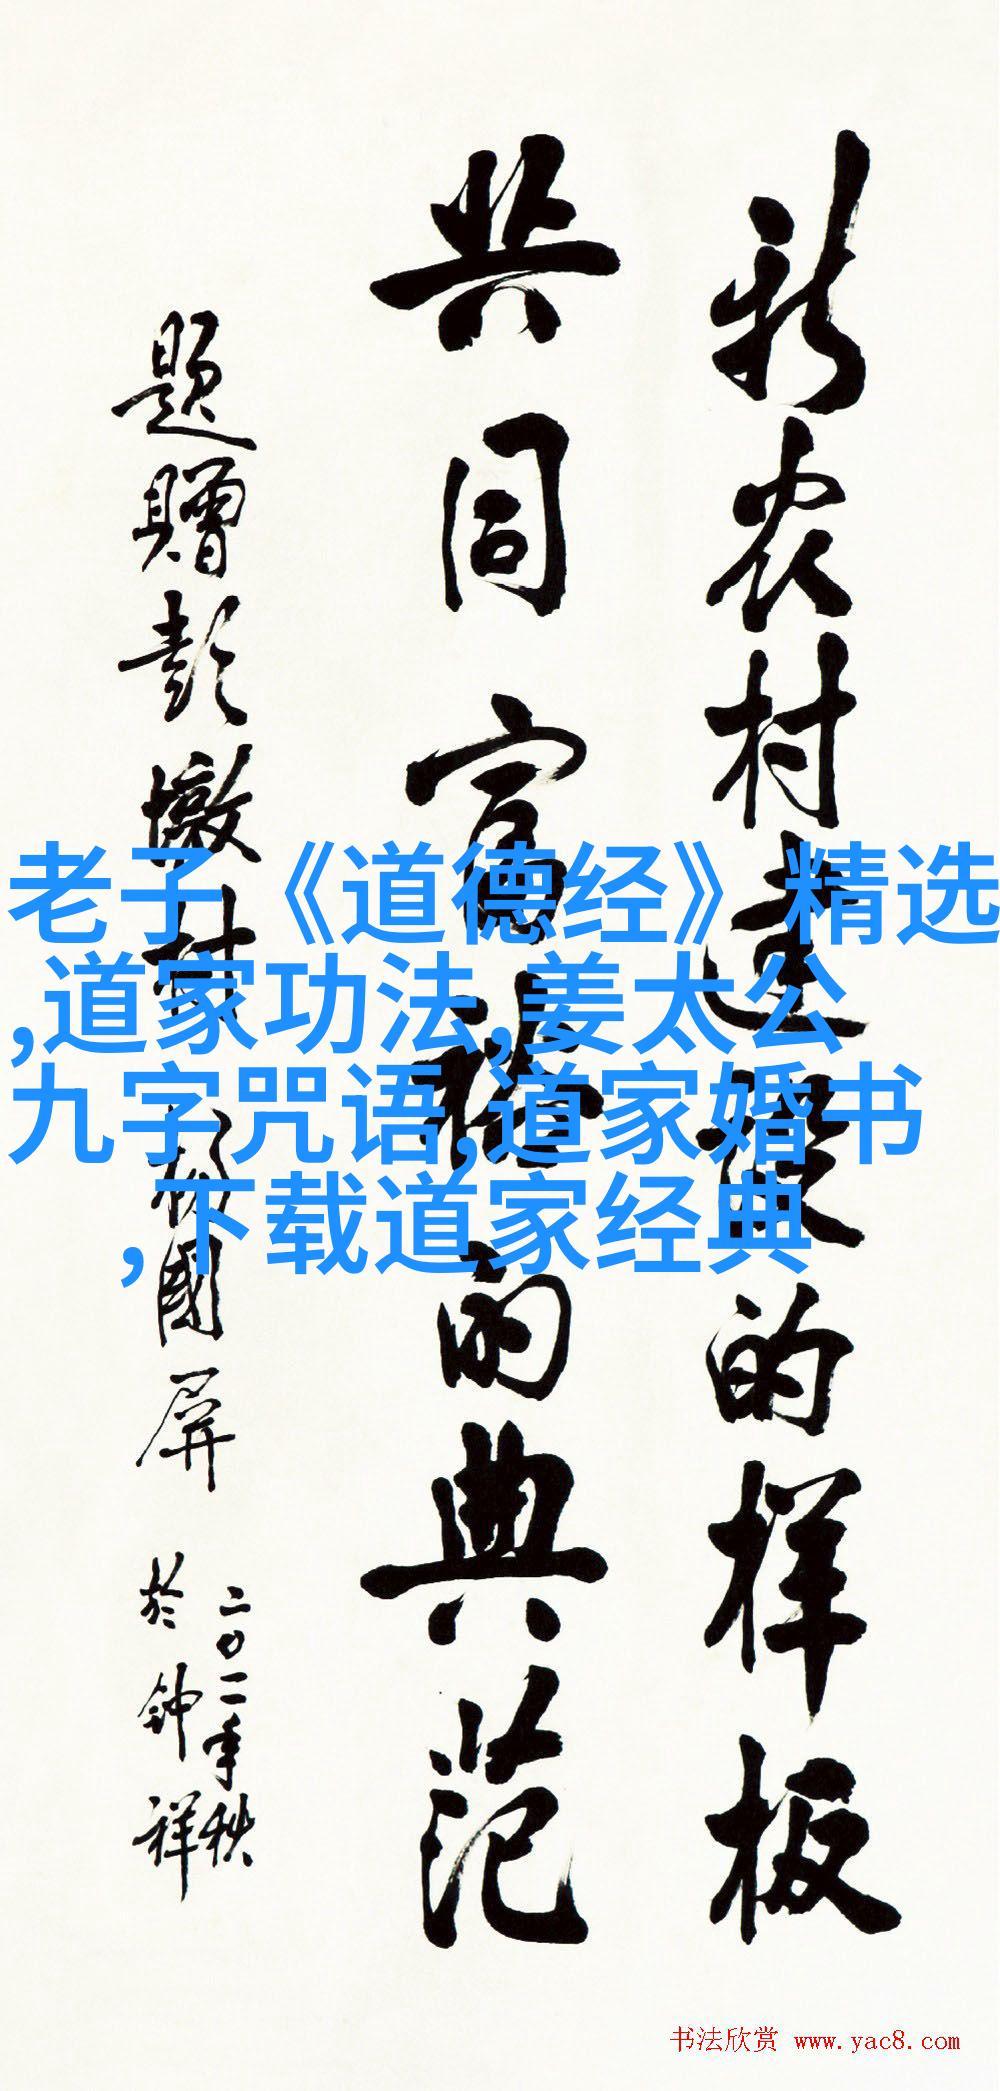 新农村建设的样板
共同富裕的典范
题赠彭墩村
杨国屏
二〇一一年秋
於钟祥
老子《道德经》精选
,道家功法,姜太公
九字咒语,道家婚书
,下载道家经典
书法欣赏 www.yac8.com